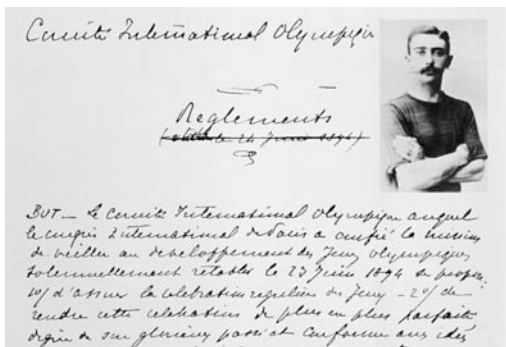 Comité International Olympique
Règlements
(
le 24 Juin 1894)
BUT — Le Comité International Olympique auquel
le congrès International de Paris a confié la mission
de veiller au développement des Jeux olympiques
solennellement rétablis le 23 Juin 1894 se propose:
1o/ d'assurer la célébration régulière des Jeux — 2o/ de
rendre cette célébration de plus en plus parfaite
digne de son glorieux passé et conforme aux idées